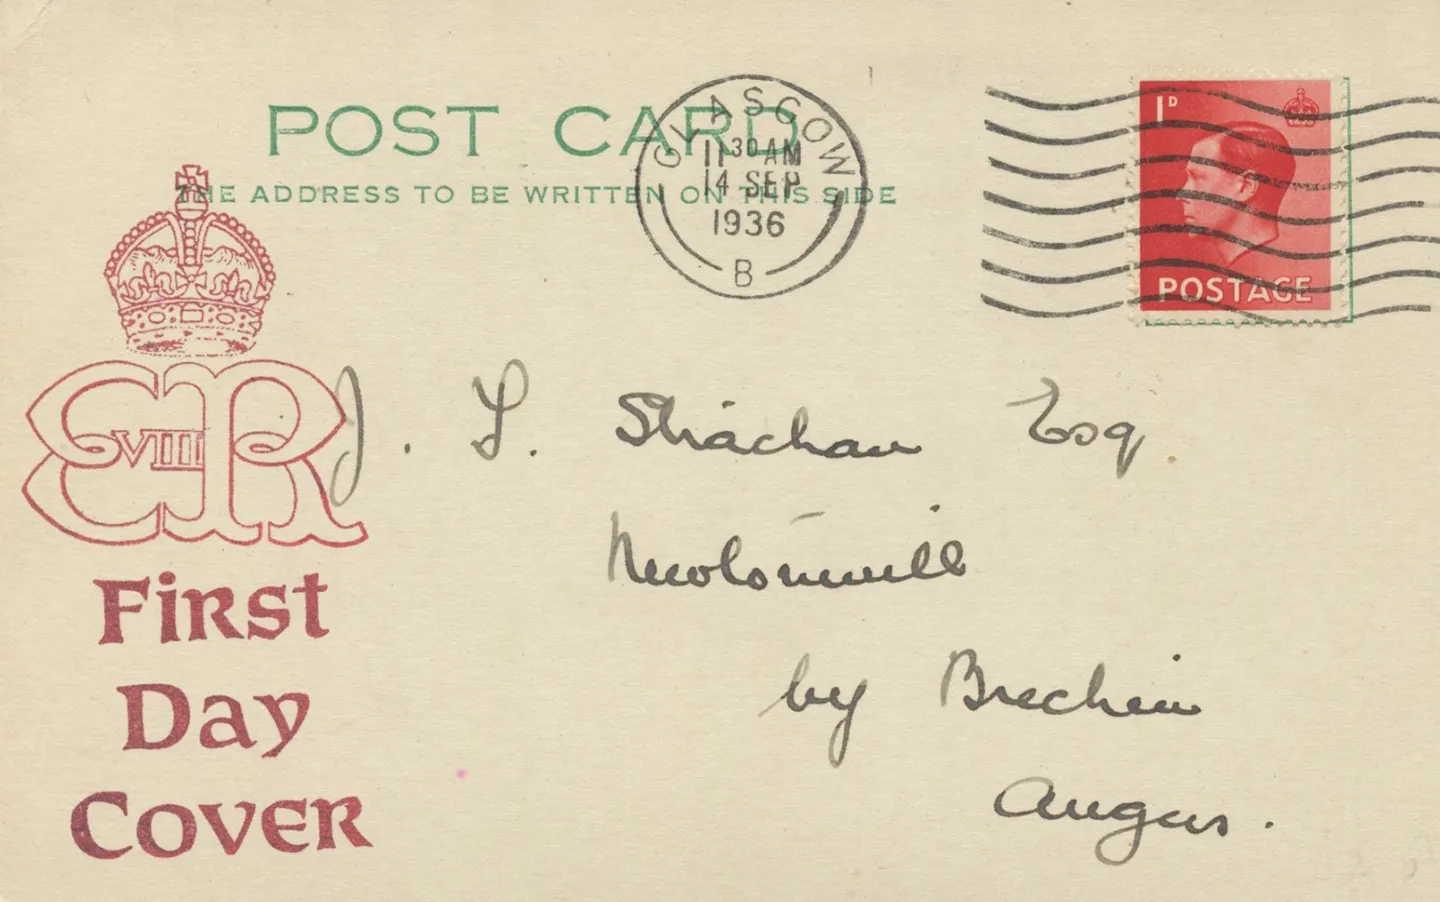 POST CARD
THE ADDRESS TO BE WRITTEN ON THIS SIDE
GLASGOW
11 30 AM
14 SEP
1936
B
1D
POSTAGE
E VIII R
First
Day
Cover
J. Strachan Esq
by Brechin
Angus.